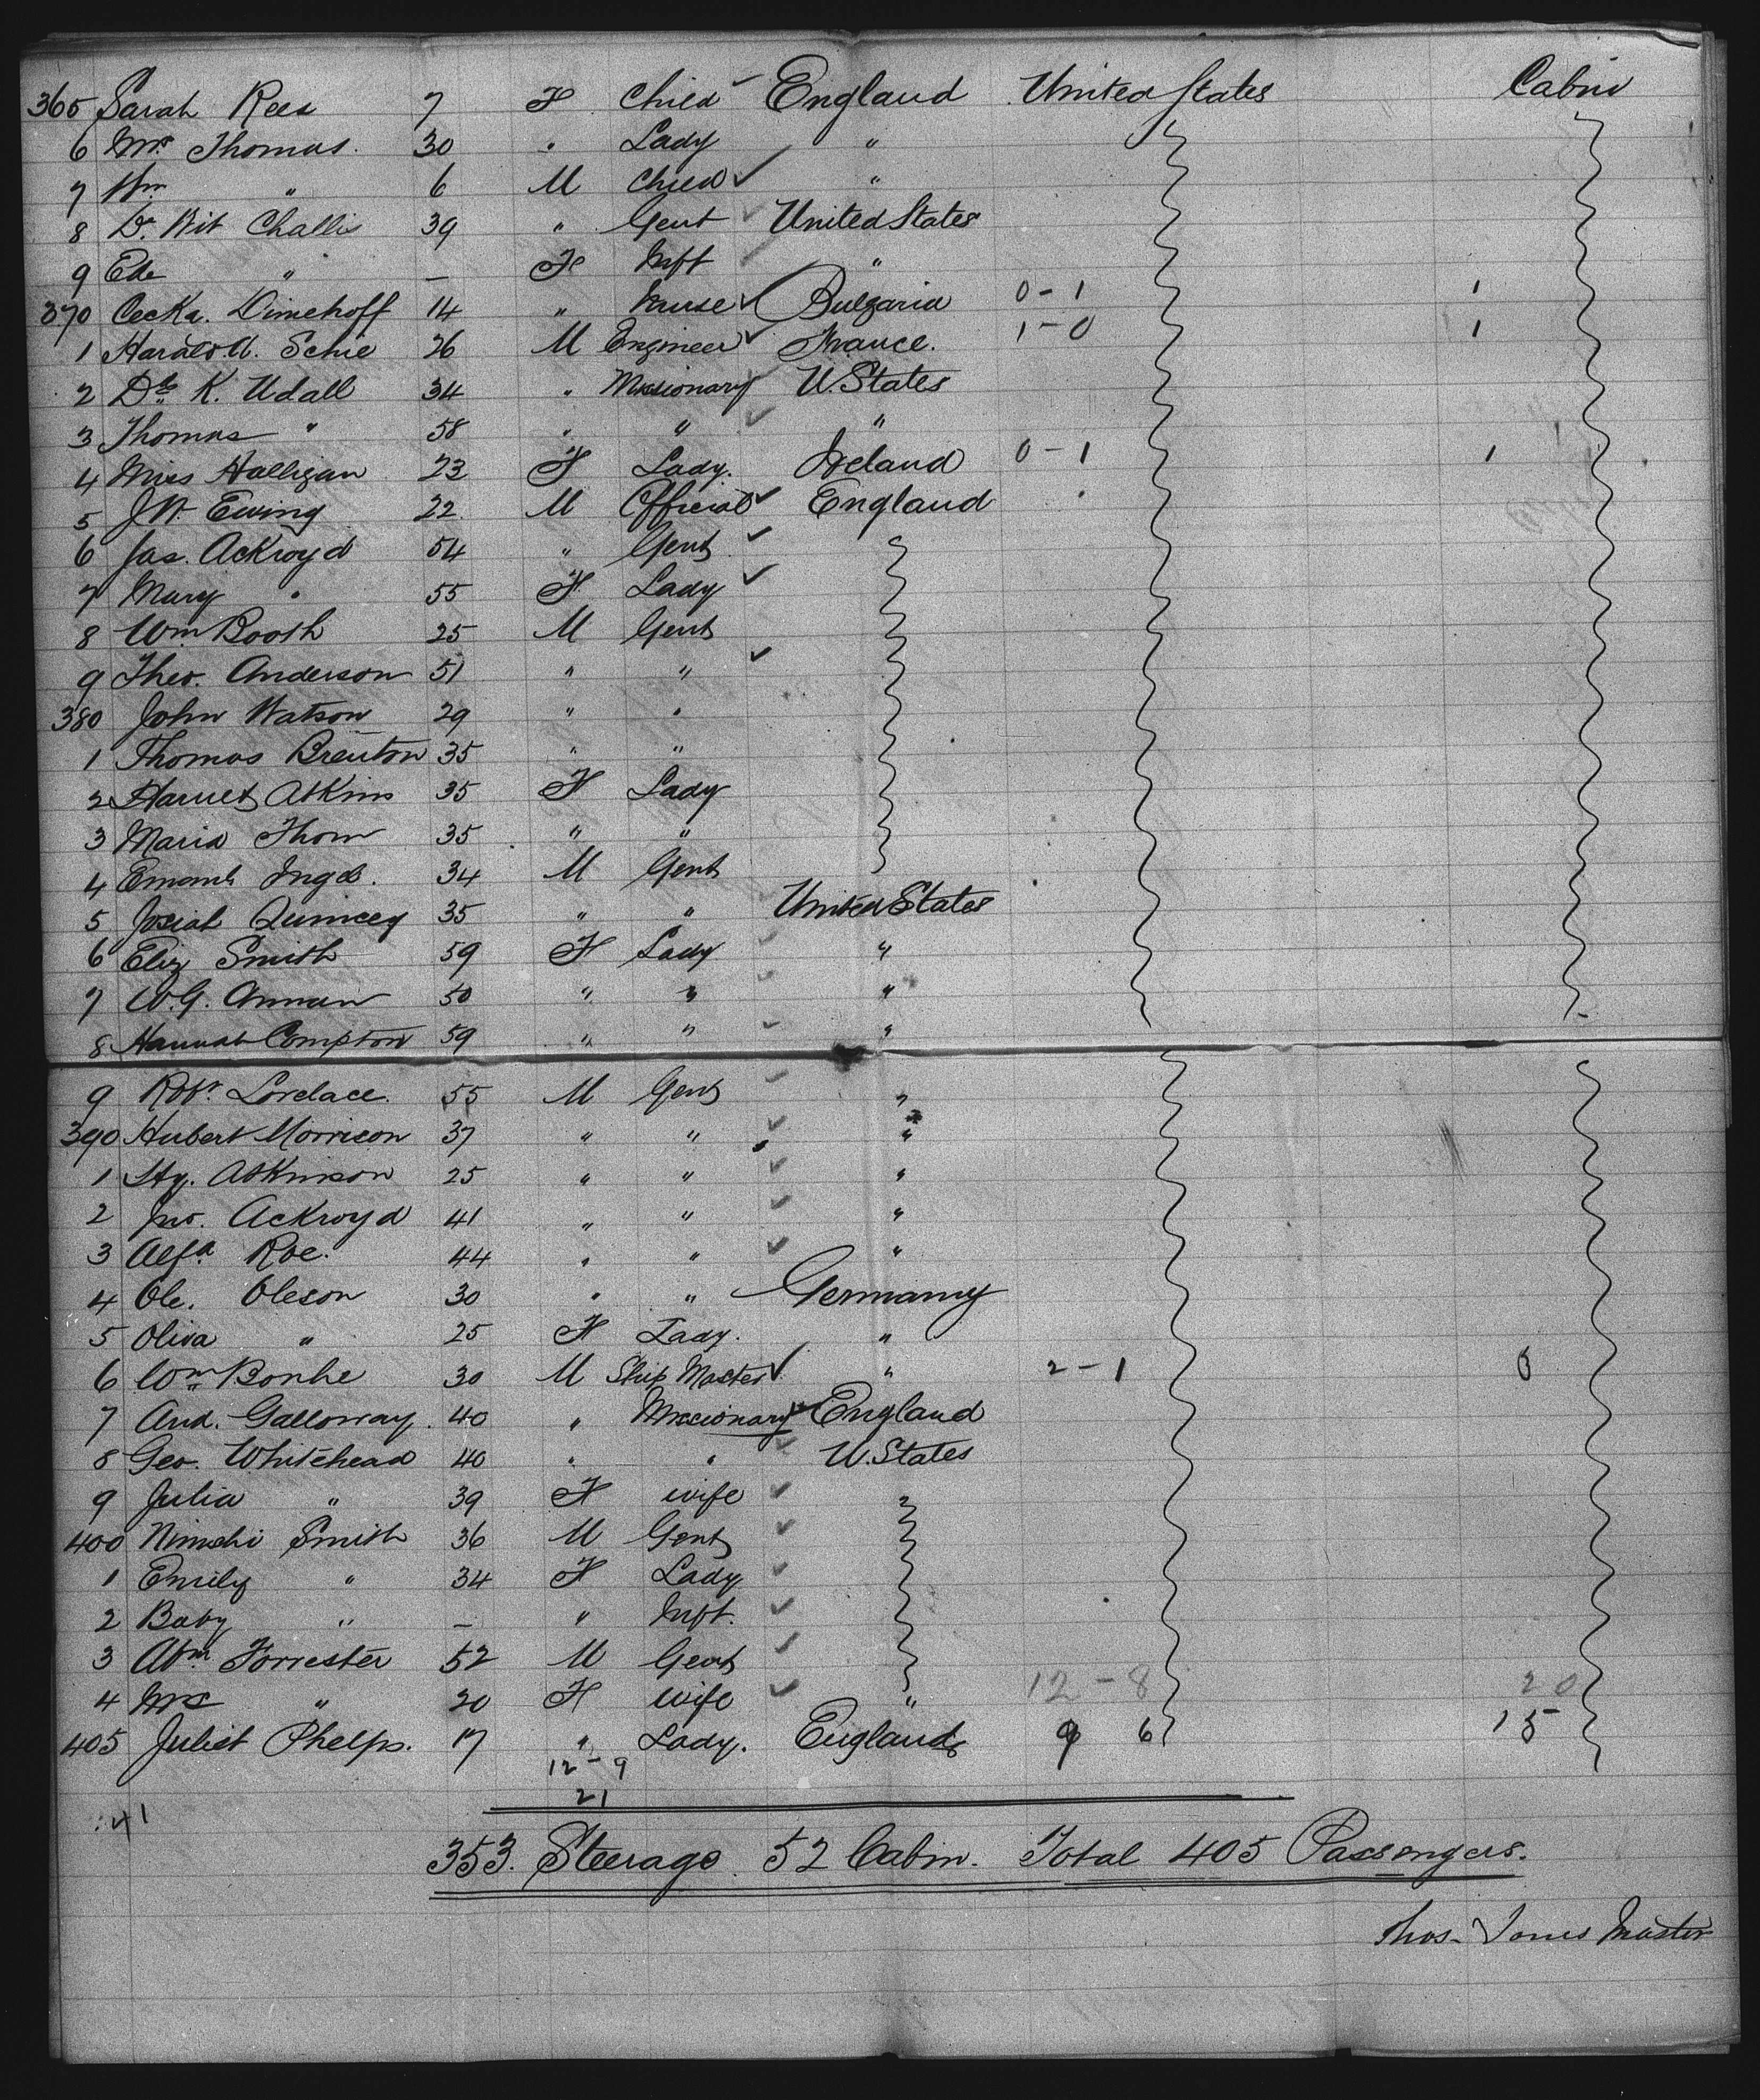 365 Sarah Rees 7 F Child England United States Cabin
6 Mrs Thomas. 30 " Lady "
7 Wm " 6 M Child "
8 Dr. Wit Challis 39 " Gent United States
9 " — F Inft "
370 Cecka. Dimchoff 14 " Nurse Bulgaria 0-1 1
1 Schie 26 M Engineer France. 1-0 1
2 K. Udall 34 " Missionary U. States
3 Thomas " 58 " " "
4 Miss Halligan 23 F Lady. Ireland 0-1 1
5 J W. Ewing 22 M Official England
6 Jas. Ackroyd 54 " Gent
7 Mary " 55 F Lady
8 Wm Booth 25 M Gent
9 Theo. Anderson 51 " "
380 John Watson 29 " "
1 Thomas Brenton 35 " "
2 Harriet Atkins 35 F Lady
3 Maria Thom 35 " "
4 34 M Gent
5 Josiah Quincey 35 " " United States
6 Eliz Smith 59 F Lady "
7 W.G. Annan 50 " " "
8 Hannah Compton 59 " " "
9 Robt. Lovelace. 55 M Gent "
390 Hubert Morrison 37 " " "
1 Hy. Atkinson 25 " " "
2 Jno. Ackroyd 41 " " "
3 Alfd. Roe. 44 " " "
4 Ole. Oleson 30 " " Germany
5 Oliva " 25 F Lady. "
6 Wm Bonhe 30 M Ship Master " 2-1 3
7 And. Galloway. 40 " Missionary England
8 Geo. Whitehead 40 " " U. States
9 Julia " 39 F wife
400 Nimshi Smith 36 M Gent
1 Emily " 34 F Lady
2 Baby " — " Inft.
3 Abm Forrester 52 M Gent
4 Mrs " 20 F wife " 12-8 20
405 Juliet Phelps. 17 " Lady. England 9 6 15
12-9
21
41
353. Steerage 52 Cabin. Total 405 Passengers.
Thos. Jones Master